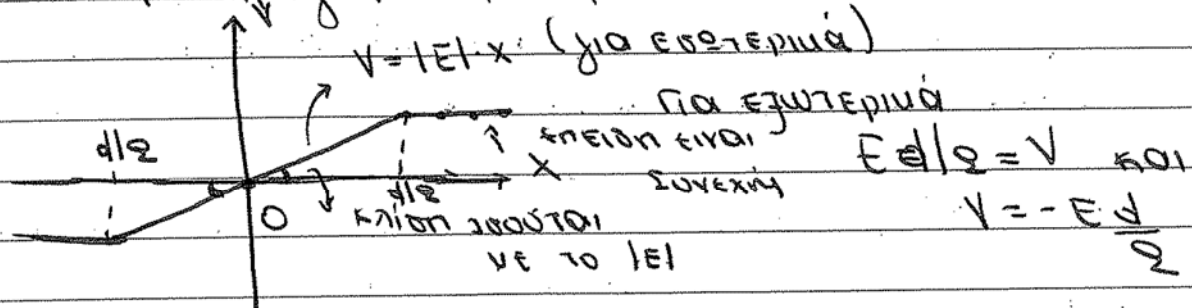 V
V = |E|·x (για εσωτερικά)
Για εξωτερικά
επειδη ειναι
συνεχής
E d/2 = V και
V = -E d/2
d/2
d/2
x
O
κλίση ισούται
με το |E|